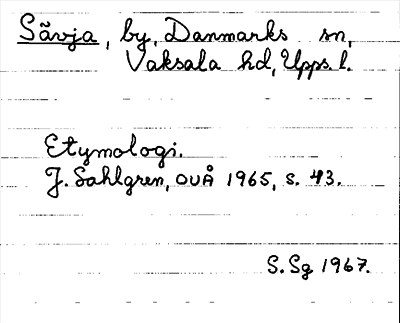 Sävja, by, Danmarks sn,
Vaksala hd, Upps. l.
Etymologi.
J. Sahlgren, OUÅ 1965, s. 43.
S. Sg 1967.